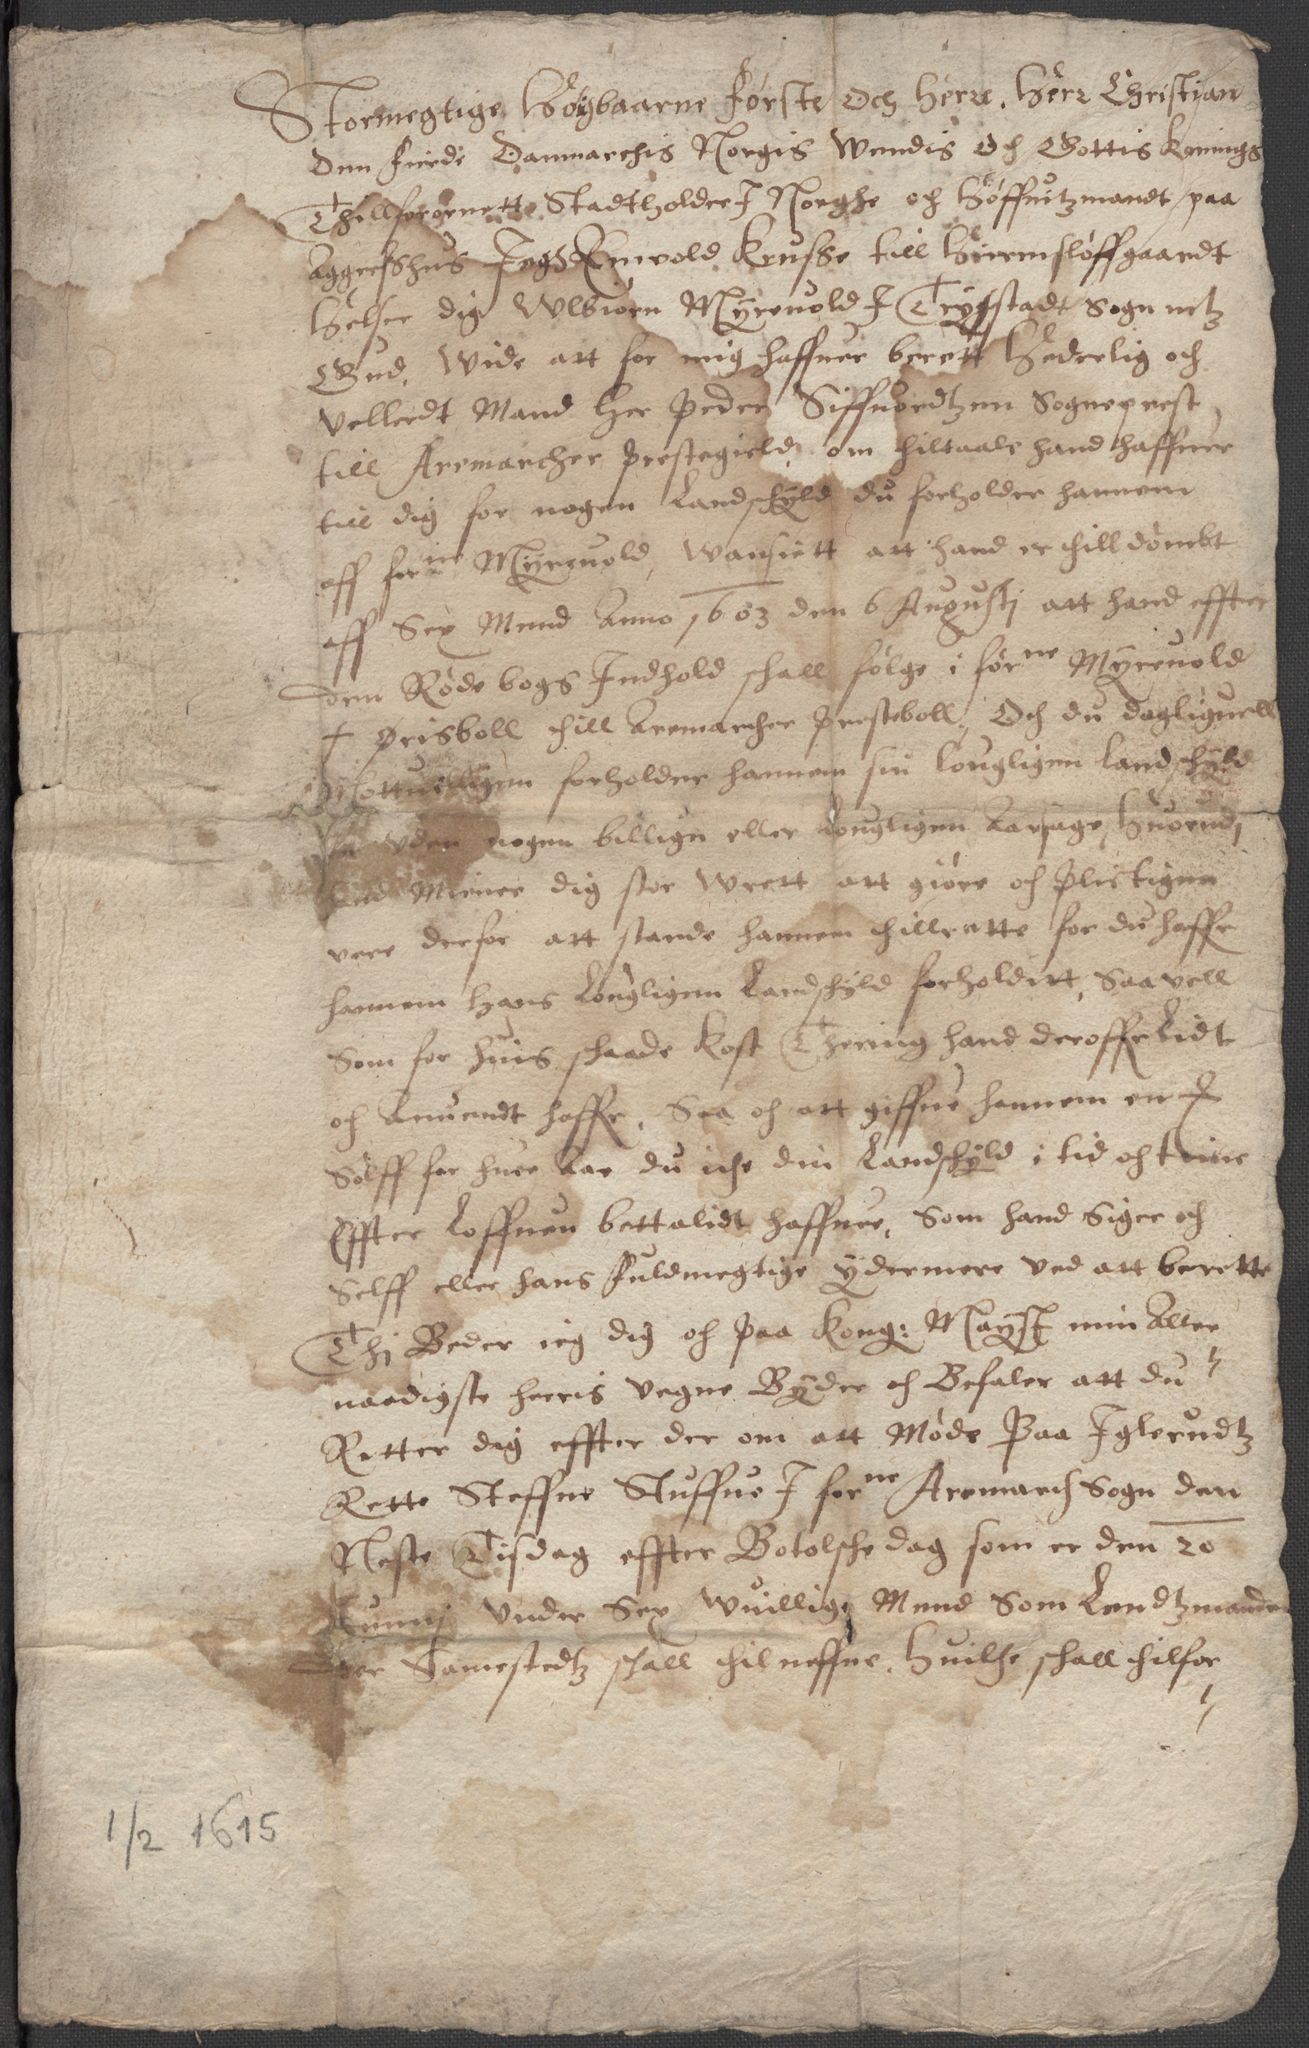 Stormegtige Høgbaarne Første Och Herre, Herr Christian
Den fierde Danmarchis Norgis Wendis Och Gottis Konings
Thillforornett Stadtholder I Norghe och Høffuitzmandt paa
Aggershus Jegh Enuold Krusse till Hiermsløffgaardt
Helser dig Wlbiørn Myreuold I Trygstadt Sogn metz
Gud, Wide att for mig haffuer berett Hederlig och
Vellerdt Mand Her Peder Siffuordtzen Sogneprest
till Aremarcher prestegield, om thiltaale hand haffuer
till dig for nogen Landschyld du forholder hannem
aff forne Myreuold, Wansiett att hand er thilldømbt
aff Sex Mend Anno 1603 den 6 Augustj att hand effter
den Røde bogs Indhold schall følge i forne Myreuold
Ørisboll thill Aremarcher prestboll, Och du dagliguell
Mottuilligen forholder hannem sin Lougligen Landschyld
for vden nogen billign eller Lougligen Aarsage, Huorudj
hand Miener dig stor Wrett att giøre och plictigen
vere derfor att stande hannem thillrette for du haffr
hannem hans Lougligen Landschyld forholditt, Saauell
Som for huis schaade Kost Thering hand deroffr Lidt
och Anuendt haffr, Saa och att giffue hannem en
Sølff for huer Aar du iche din Landschyld i tid och time
Effter Loffuen bettalidt haffuer, Som hand Siger och
Selff eller hans fuldmegtige ydermere ved att berette
Thj Beder ieg dig och paa Kong: Mayst min Aller
naadigste herris vegne Byder och Befaler att du
Retter dig effter der om att Møde Paa Iglerudtz
Rette Steffne Stuffue I forne Aremarch Sogn den
Neste Tisdag effter Botolsche dag som er den 20
Junnj Vnder Sex Wuillige Mend Som Lendtzmanden
der Samestedtz schall thilneffne, Huilche schall thilfor
1/2 1615